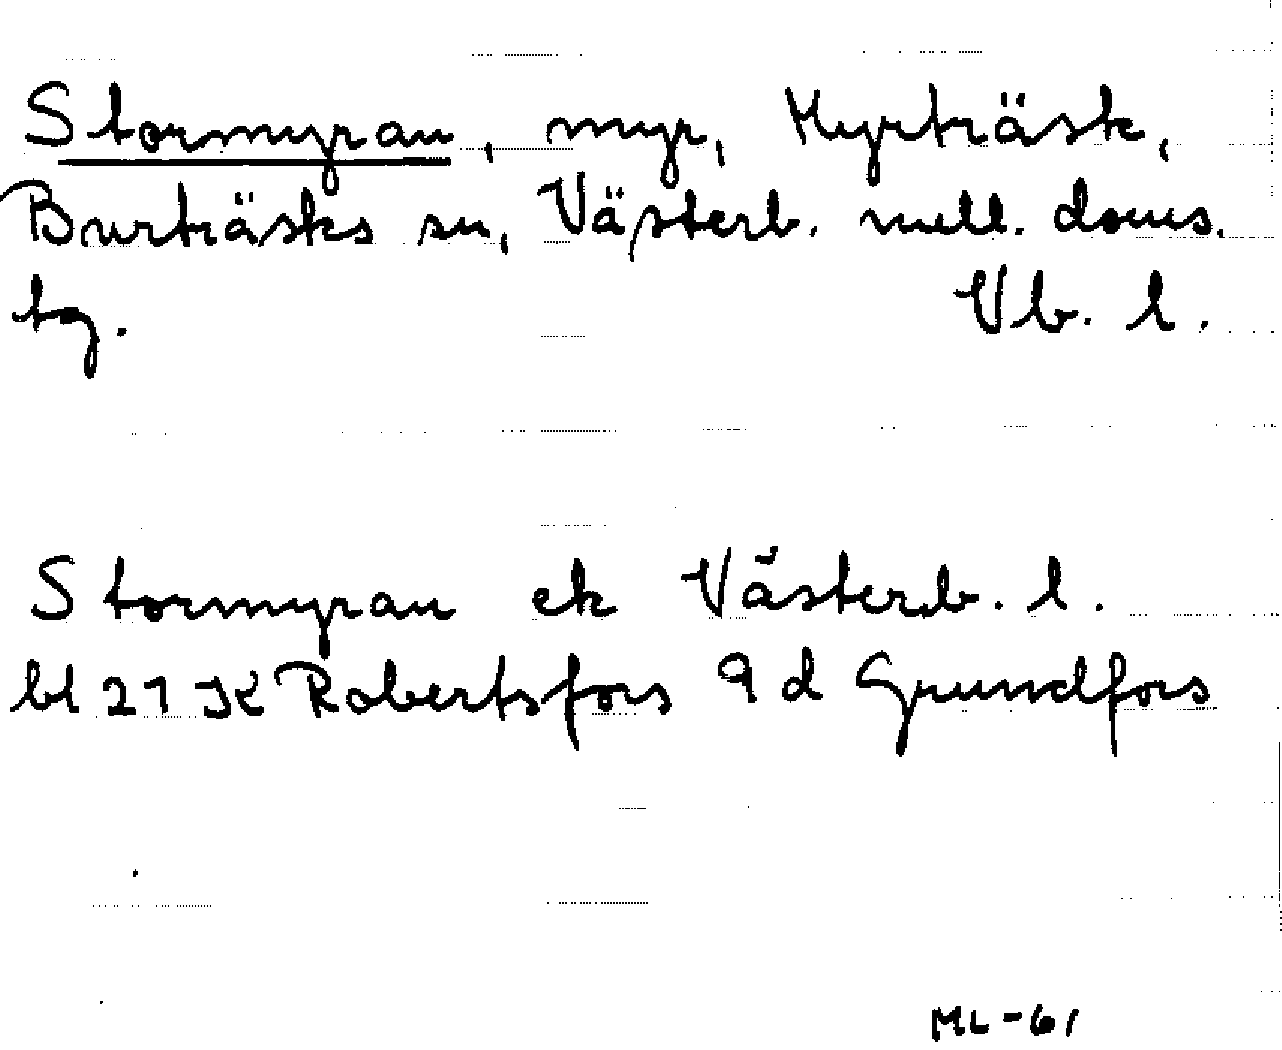 Stormyran, myr, Myrträsk,
Burträsks sn, Västerb. mell. doms.
tg. Vb. l.
Stormyran ek Västerb. l.
bl 21 JK Robertsfors 9 d Grundfors
ML-61